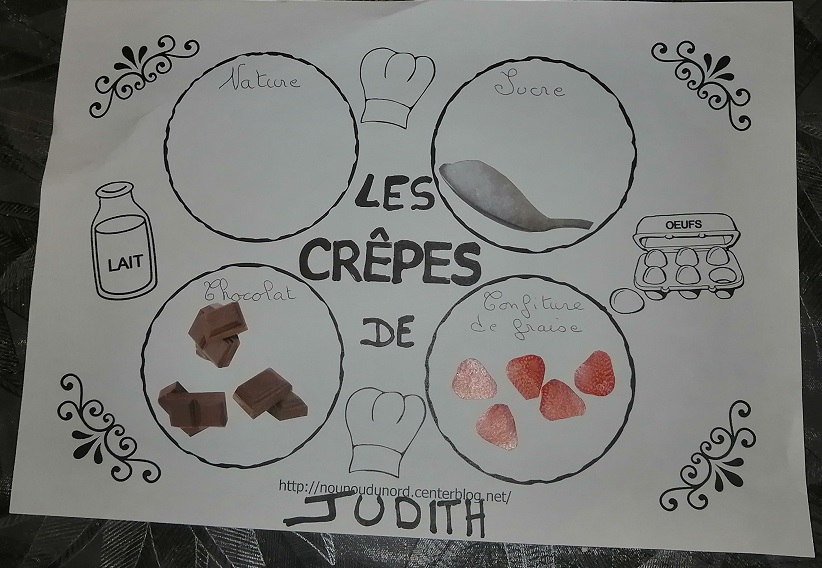 Nature
Sucre
LES
CRÊPES
DE
LAIT
OEUFS
Chocolat
Confiture
de fraise
http://nounoudunord.centerblog.net/
JUDITH